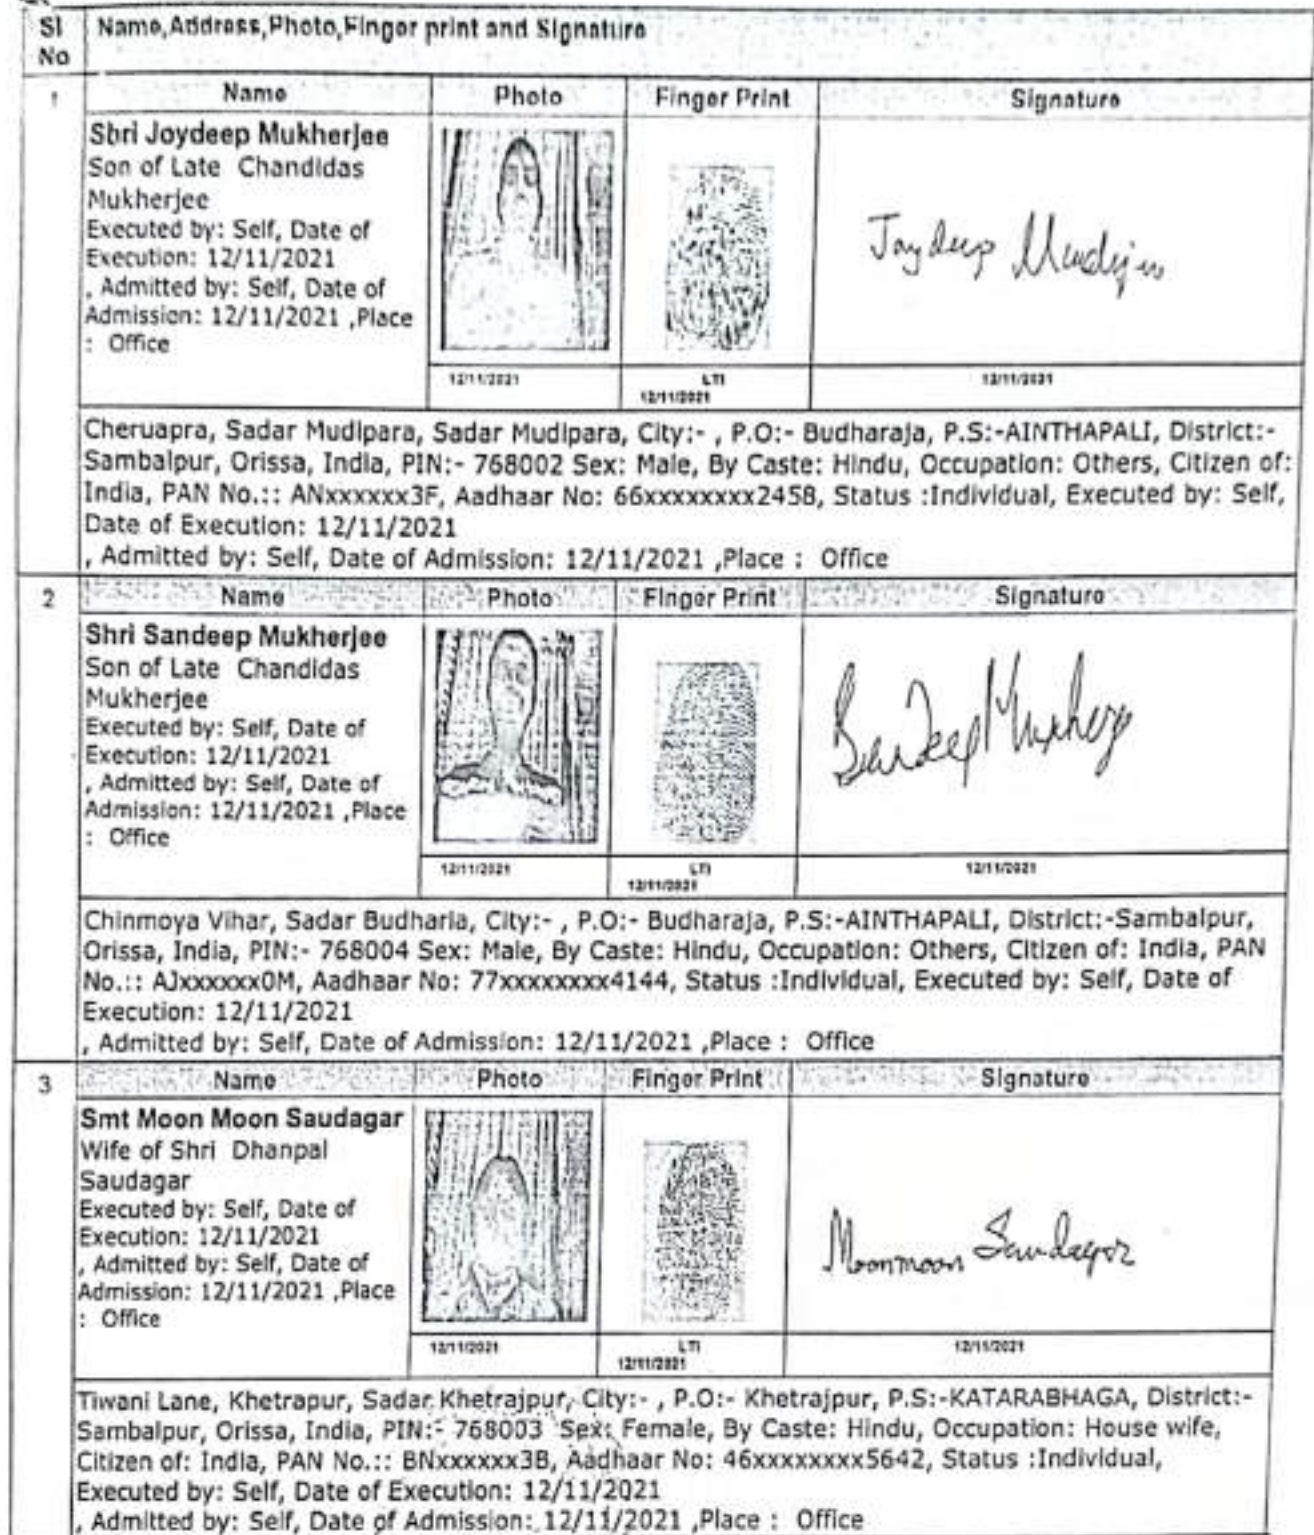 Sl No Name,Address,Photo,Finger print and Signature
1 Name Photo Finger Print Signature
Shri Joydeep Mukherjee
Son of Late Chandidas
Mukherjee
Executed by: Self, Date of
Execution: 12/11/2021
, Admitted by: Self, Date of
Admission: 12/11/2021 ,Place
: Office
Joydeep
12/11/2021 LTI 12/11/2021 12/11/2021
Cheruapra, Sadar Mudipara, Sadar Mudipara, City:- , P.O:- Budharaja, P.S:-AINTHAPALI, District:-
Sambalpur, Orissa, India, PIN:- 768002 Sex: Male, By Caste: Hindu, Occupation: Others, Citizen of:
India, PAN No.:: ANxxxxxx3F, Aadhaar No: 66xxxxxxxx2458, Status :Individual, Executed by: Self,
Date of Execution: 12/11/2021
, Admitted by: Self, Date of Admission: 12/11/2021 ,Place : Office
2 Name Photo Finger Print Signature
Shri Sandeep Mukherjee
Son of Late Chandidas
Mukherjee
Executed by: Self, Date of
Execution: 12/11/2021
, Admitted by: Self, Date of
Admission: 12/11/2021 ,Place
: Office
12/11/2021 LTI 12/11/2021 12/11/2021
Chinmoya Vihar, Sadar Budharla, City:- , P.O:- Budharaja, P.S:-AINTHAPALI, District:-Sambalpur,
Orissa, India, PIN:- 768004 Sex: Male, By Caste: Hindu, Occupation: Others, Citizen of: India, PAN
No.:: AJxxxxxx0M, Aadhaar No: 77xxxxxxxx4144, Status :Individual, Executed by: Self, Date of
Execution: 12/11/2021
, Admitted by: Self, Date of Admission: 12/11/2021 ,Place : Office
3 Name Photo Finger Print Signature
Smt Moon Moon Saudagar
Wife of Shri Dhanpal
Saudagar
Executed by: Self, Date of
Execution: 12/11/2021
, Admitted by: Self, Date of
Admission: 12/11/2021 ,Place
: Office
Moonmoon Saudagar
12/11/2021 LTI 12/11/2021 12/11/2021
Tiwani Lane, Khetrapur, Sadar Khetrajpur, City:- , P.O:- Khetrajpur, P.S:-KATARABHAGA, District:-
Sambalpur, Orissa, India, PIN:- 768003 Sex: Female, By Caste: Hindu, Occupation: House wife,
Citizen of: India, PAN No.:: BNxxxxxx3B, Aadhaar No: 46xxxxxxxx5642, Status :Individual,
Executed by: Self, Date of Execution: 12/11/2021
, Admitted by: Self, Date of Admission: 12/11/2021 ,Place : Office